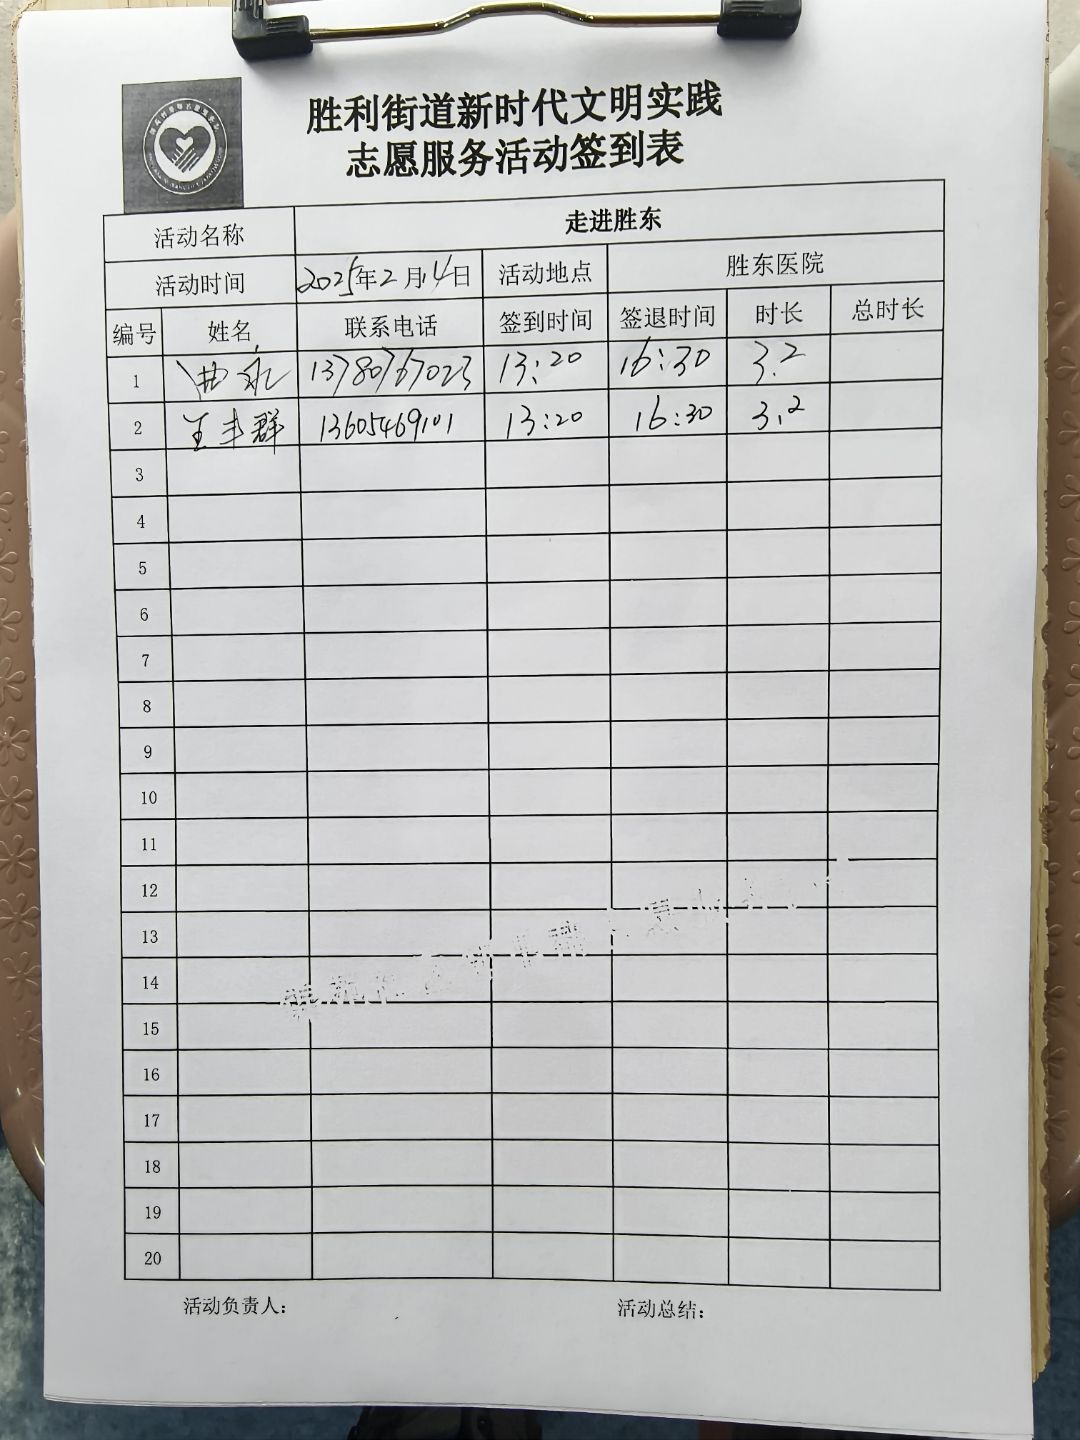 胜利街道新时代文明实践
志愿服务活动签到表
活动名称 走进胜东
活动时间 2025年2月14日 活动地点 胜东医院
编号 姓名 联系电话 签到时间 签退时间 时长 总时长
1 13780767023 13:20 16:30 3.2
2 王丰群 13605469101 13:20 16:30 3.2
3
4
5
6
7
8
9
10
11
12
13
14
15
16
17
18
19
20
活动负责人: 活动总结: